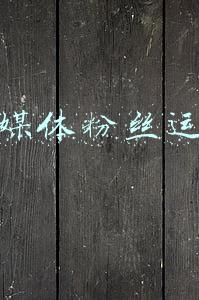 媒体粉丝运